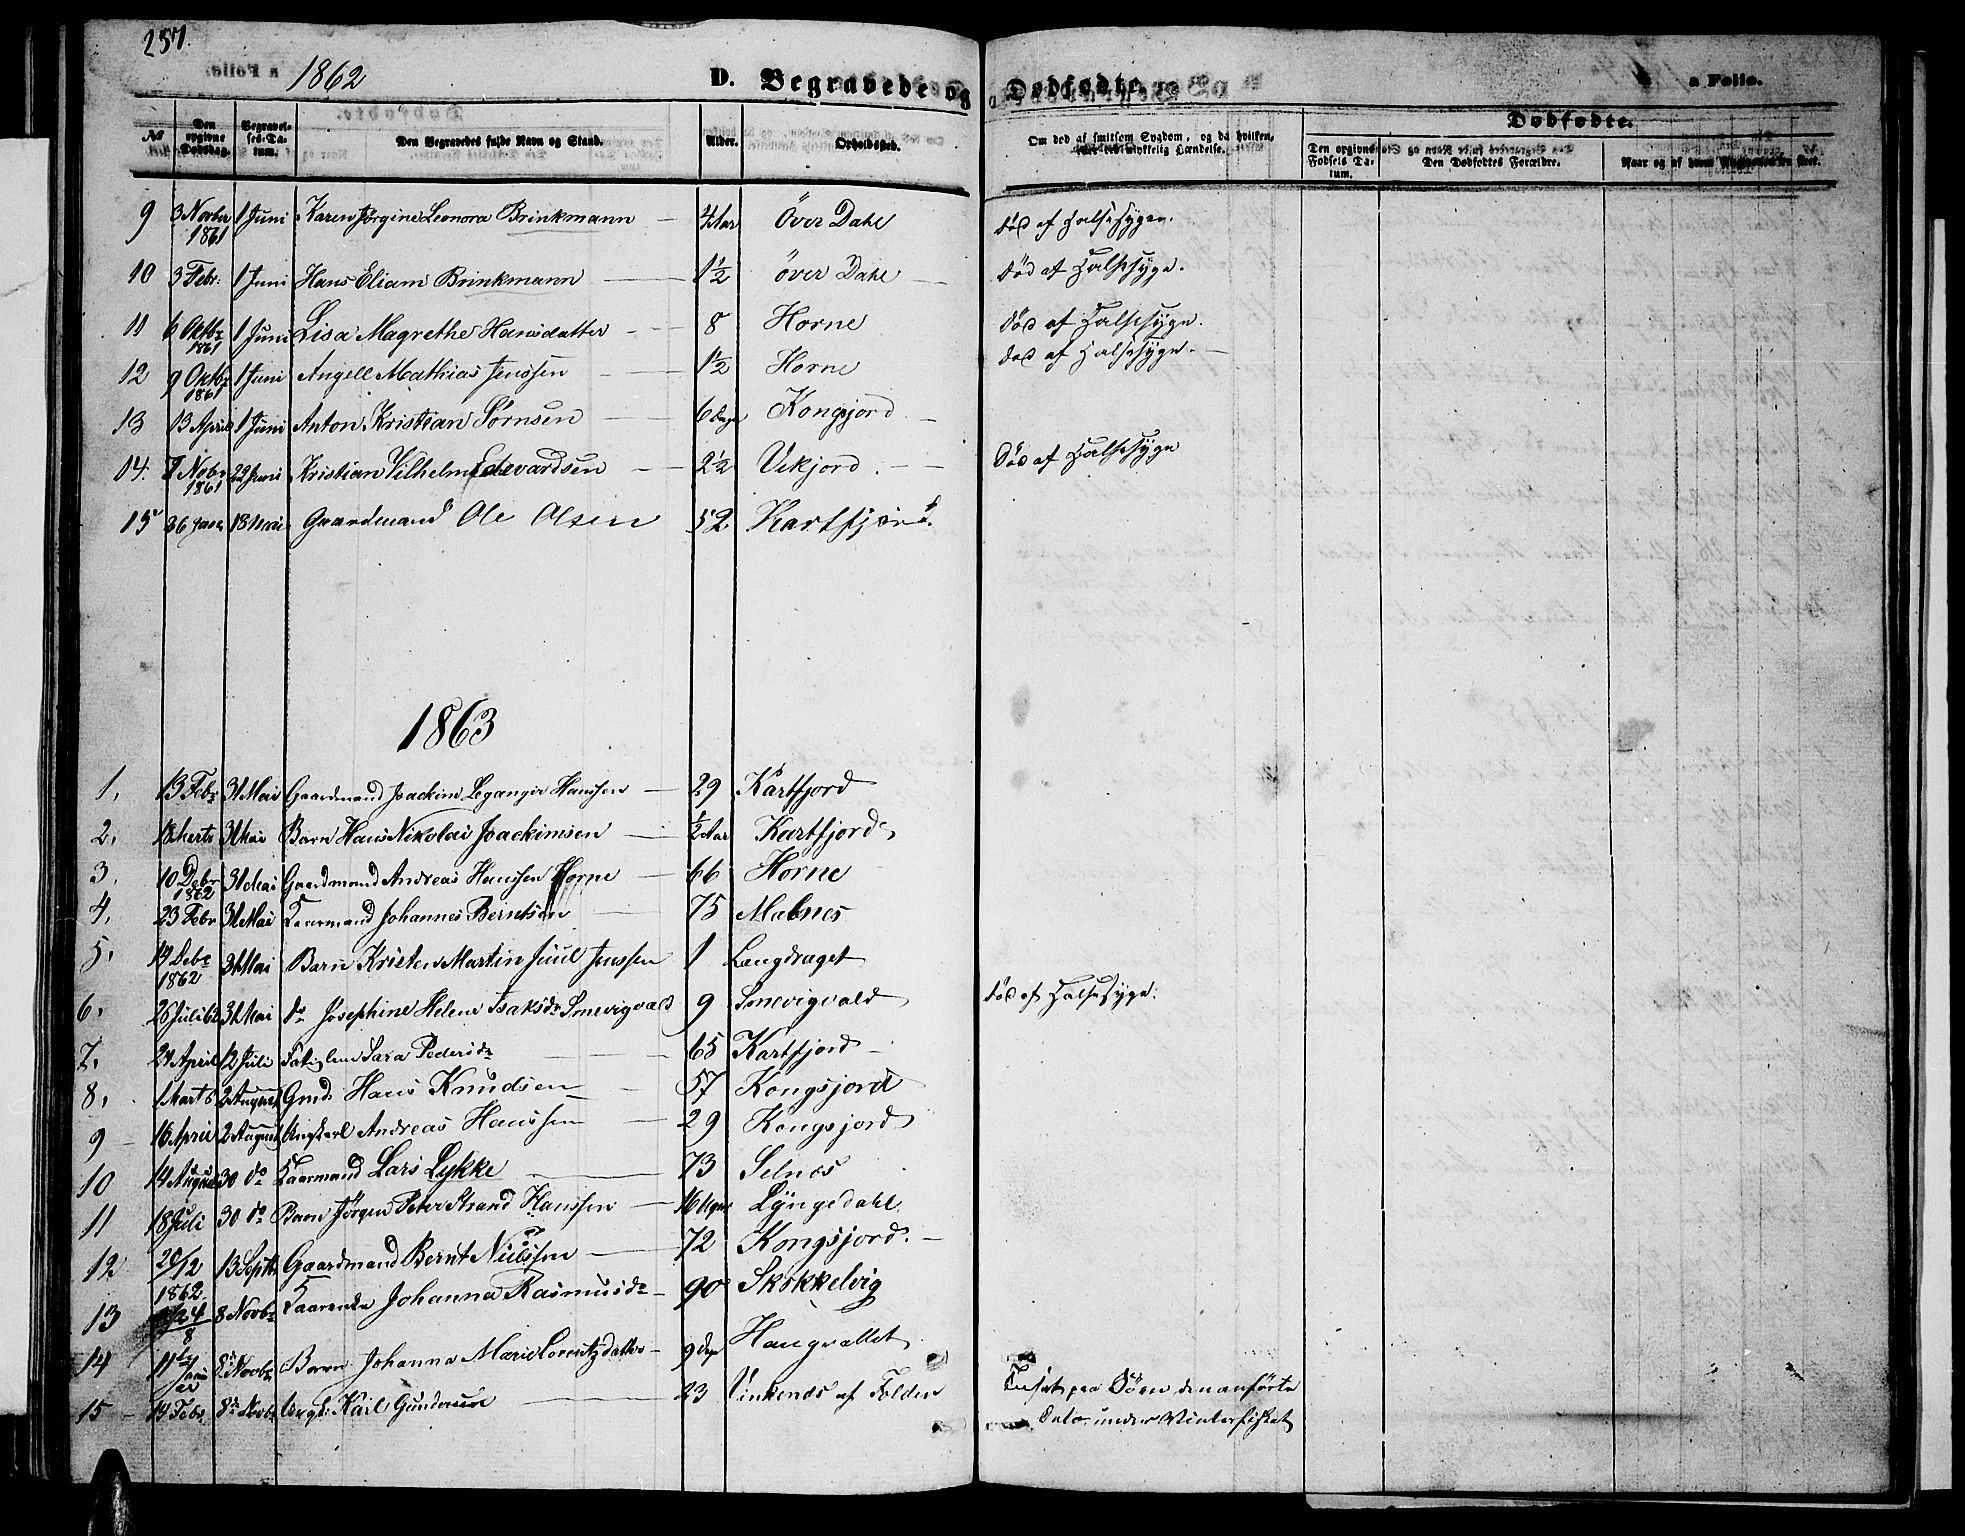 257.
1862
D. Begravede og Dødfødte.
a Folio.
№ Den opgivne Dødsdag. Begravelses-Datum. Den Begravedes fulde Navn og Stand. Alder. Opholdssted. Om død af smitsom Sygdom, og da hvilken, eller ved ulykkelig Hændelse. Dødfødte.
Den opgivne Fødsels Datum. Den Dødfødtes Forældre. Naar og af hvem Angivelsen er skeet.
9 3 Novber 1861 1 Juni Karen Jørgine Leonora Brinkmann 4 Aar Över Dahl død af Halsesygen.
10 3 Febr. 1 Juni Hans Eliam Brinkmann 1½ över Dahl Död af Halsesyge.
11 6 Oktbr 1861 1 Juni Lisa Magrethe Hansdatter 8 Horne død af Halsesyge.
12 9 Oktbr 1861 1 Juni Angell Mathias Jenssen 1½ Horne død af Halsesyge.
13 13 April 1 Juni Anton Kristian Sörnsen 6 Dage Kongsjord
14. 7 Nobr 1861 22 Juni Kristian Vilhelm Edevardsen 2½ Vikjord Död af Halsesyge
15 26 Janr 18 Mai Gaardmand Ole Olsen 52 Kartfjord.
1863
1, 13 Febr 31 Mai Gaardmand Joachim Leganger Hanssen 29 Kartfjord
2, 18 Marts 31 Mai Barn Hans Nikolai Joachimsen ½ Aar Kartfjord
3. 10 Debr 1862 31 Mai Gaardmand Andreas Hanssen Horne 66 Horne
4, 23 Febr 31 Mai Kaarmand Johannes Berntsen 75 Malnes
5, 14 Debr 1862 31 Mai Barn Kristen Martin Juul Jenssen 1 Langdraget
6, 26 Juli 62 31 Mai do Josephine Helene Isaksdr Smevigvald 9 Smevigvald död af Halsesyge.
7, 24 April 12 Juli Fatiglem Sara Pedersdr 65 Kartfjord
8, 1 Marts 2 August Gmd. Hans Knudsen 57 Kongsjord
9 16 April 2 August Ungkarl Andreas Hanssen 29 Kongsjord
10 14 August 30 do Kaarmand Lars Lykke 73 Selnæs
11 18 Juli 30 do Barn Jörgen Peter Strand Hanssen 16 Uger Lyngedahl
12 20/12 1862 13 Septbr Gaardmand Bernt Nielssen 72 Kongsjord.
13 24/8 8 Novbr Kaarenke Johanna Rasmusdr 90 Skokkelvig
14 11 Januar 8de Novbr Barn Johanna Marie Lorentzdatter 9 Dage Haugvallet
15 14 Febr. 8de Novbr Ungk: Karl Gundersen 23 Vinkenæs af Folden
Forlist paa Søen den anførte Dato under Vinterfisket